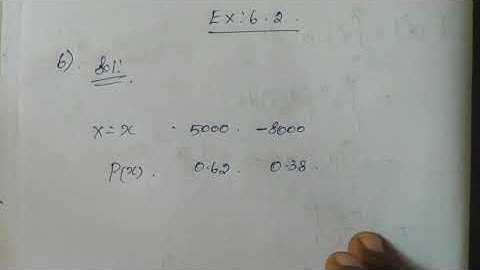 Ex:6.2.
6). Sol:
X=x . 5000. -8000
P(x). 0.62 0.38.